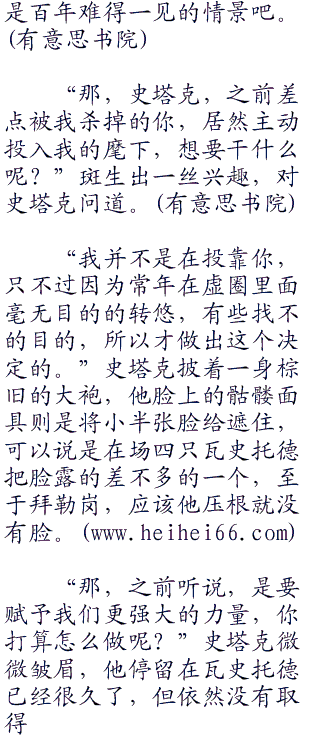 是百年难得一见的情景吧。
(有意思书院)
“那，史塔克，之前差
点被我杀掉的你，居然主动
投入我的麾下，想要干什么
呢？”斑生出一丝兴趣，对
史塔克问道。(有意思书院)
“我并不是在投靠你，
只不过因为常年在虚圈里面
毫无目的的转悠，有些找不
的目的，所以才做出这个决
定的。”史塔克披着一身棕
旧的大袍，他脸上的骷髅面
具则是将小半张脸给遮住，
可以说是在场四只瓦史托德
把脸露的差不多的一个，至
于拜勒岗，应该他压根就没
有脸。(www.heihei66.com)
“那，之前听说，是要
赋予我们更强大的力量，你
打算怎么做呢？”史塔克微
微皱眉，他停留在瓦史托德
已经很久了，但依然没有取
得